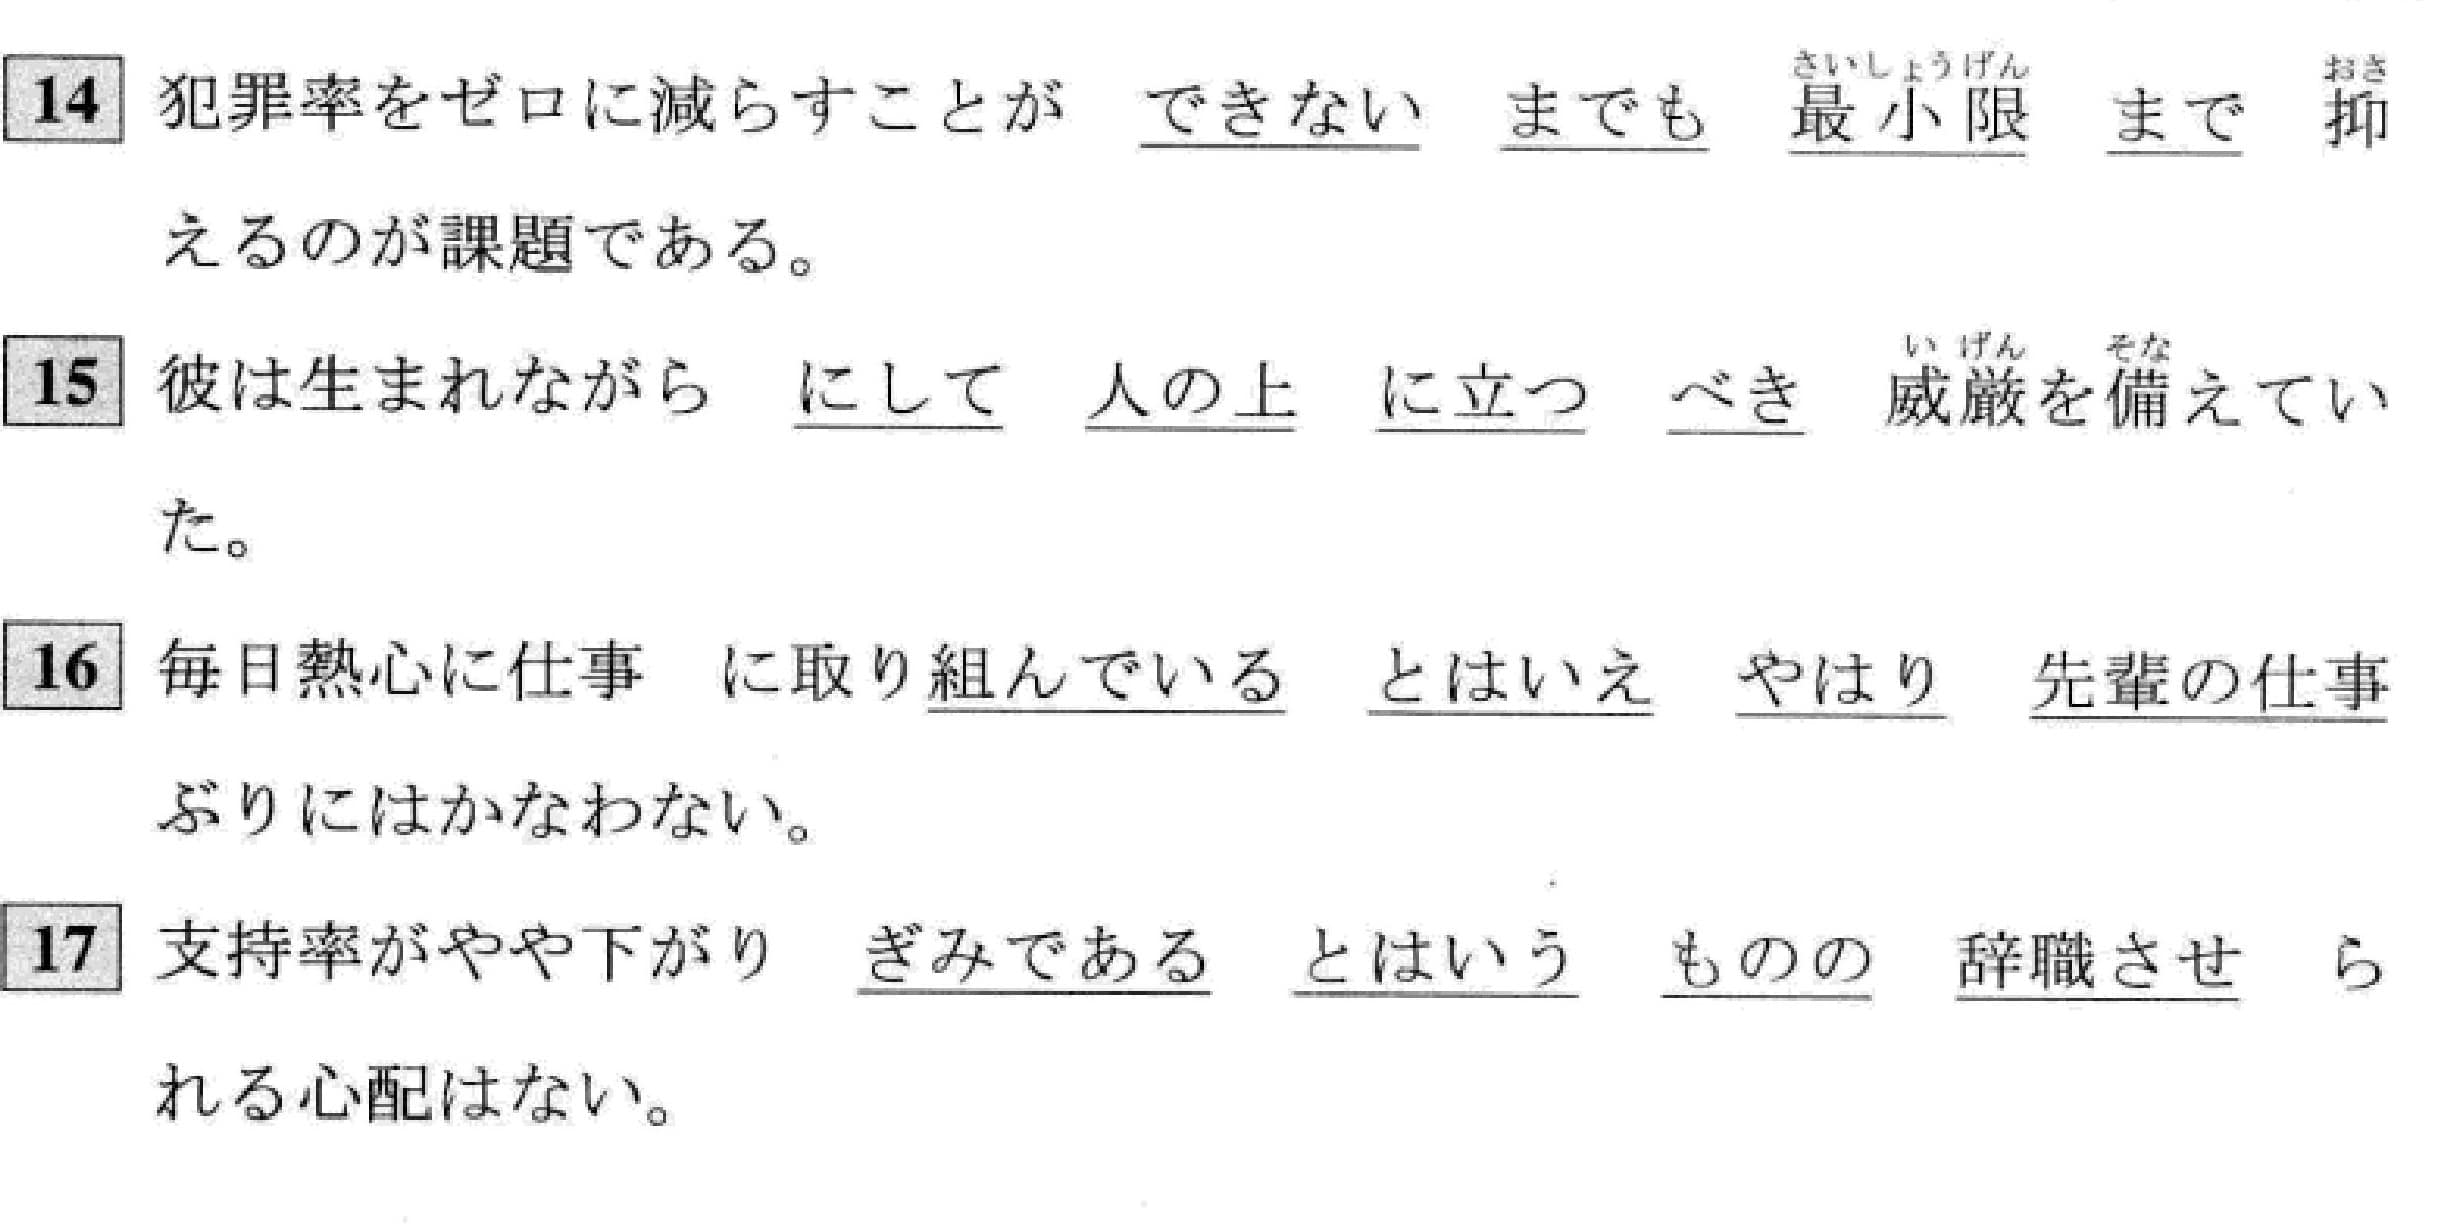 14 犯罪率をゼロに減らすことが できない までも 最小限 まで 抑
えるのが課題である。
15 彼は生まれながら にして 人の上 に立つ べき 威厳を備えてい
た。
16 毎日熱心に仕事 に取り組んでいる とはいえ やはり 先輩の仕事
ぶりにはかなわない。
17 支持率がやや下がり ぎみである とはいう ものの 辞職させ ら
れる心配はない。